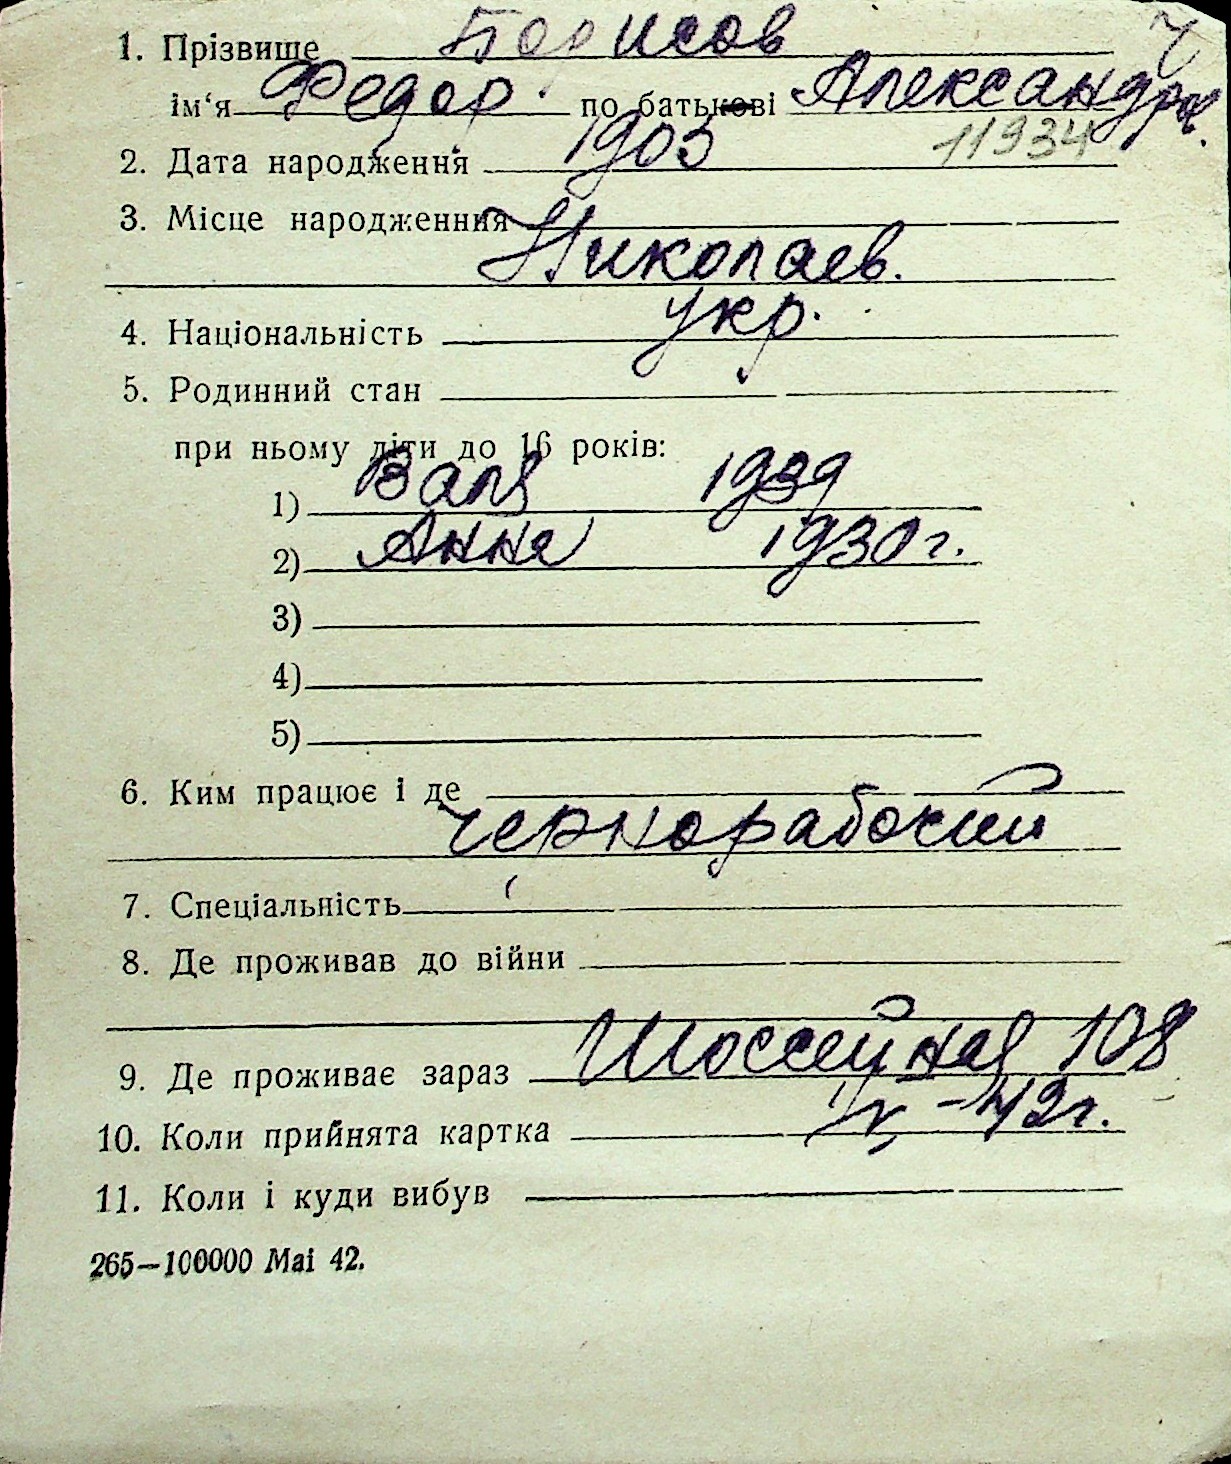 1. Прізвище Борисов
ім‘я Федор. по батькові Александр.
11934
2. Дата народження 1903
3. Місце народженння
Николаев.
4. Національність укр.
5. Родинний стан
при ньому діти до 16 років:
1) Валя 1939
2) Анна 1930г.
3)
4)
5)
6. Ким працює і де
чернорабочий
7. Спеціальність
8. Де проживав до війни
9. Де проживає зараз Шоссейная 108
10. Коли прийнята картка -42г.
11. Коли і куди вибув
265—100000 Mai 42.